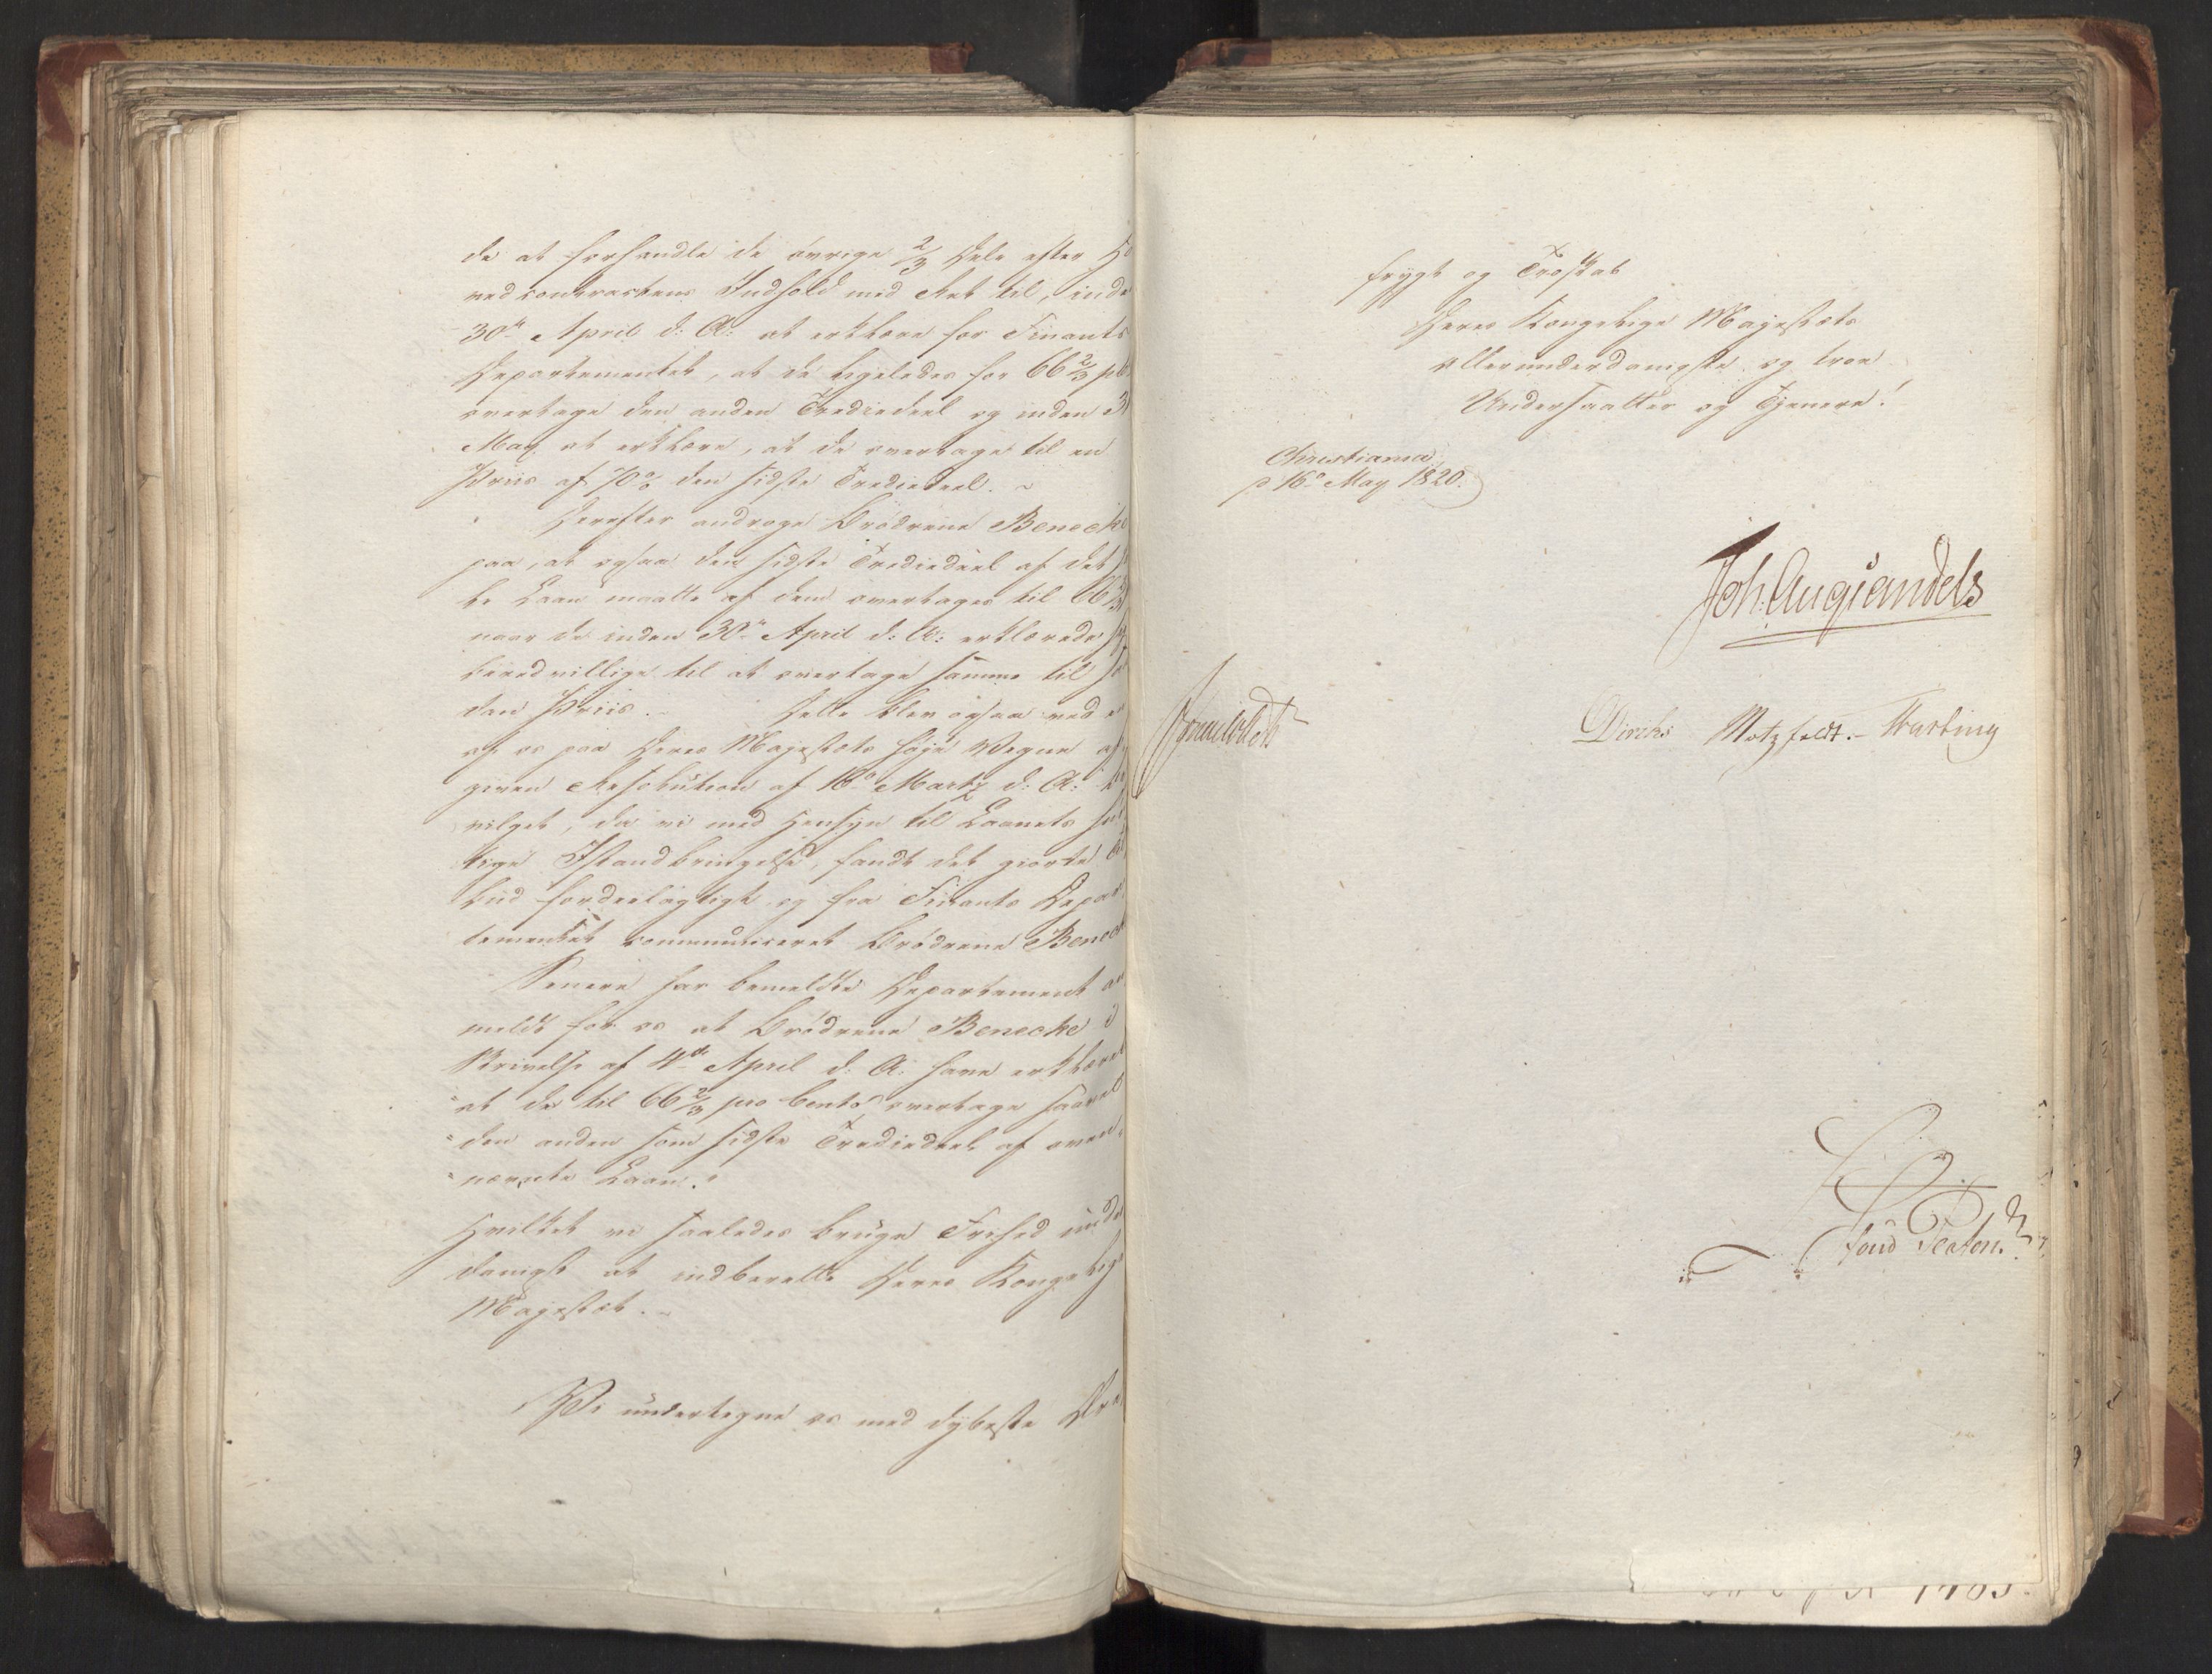 de at forhandle de øvrige 2/3 Dele efter Ho
vedcontractens Indhold med Ret til, inde
30te April d: A: at erklære for Finants
Departementet, at de ligeledes for 66 2/3 pC
overtage den anden Trediedeel og inden 31
May at erklære, at de overtage til en
Priis af 70% den sidste Trediedeel. ~
Derefter androge Brødrene Benecke
paa, at ogsaa den sidste Trediedeel af det
te Laan maatte af dem overtages til 66 2/3
naar de inden 30te April d: A: erklærede
beredvillige til at overtage samme til
den Priis. – Dette blev ogsaa ved
af os paa Deres Majestæts høje Vegne af
given Resolution af 16de Martz d: A: be
vilget, da vi med Hensyn til Laanets
tige Istandbringelse, fandt det giorte Til
bud fordeelagtigt og fra Finants Depar
tementet communiceret Brødrene Beneck
Senere har bemeldte Departement an
meldt for os at Brødrene Benecke i
Skrivelse af 4de April d: A: have erklæret
"at de til 66 2/3 pro Cento, overtage saavel
"den anden som sidste Trediedeel af oven
"nævnte Laan."
Hvilket vi saaledes bruge Frihed under
danigst at indberette Deres Kongelige
Majestæt. –
Vi undertegne os med dybeste Ære
frygt og Troskab
Deres Kongelige Majestæts
allerunderdanigste og troe
Undersaatter og Tjenere!
Christiania
d 16de May 1820.
Joh: Aug: Sandels
Sommerhielm
Diriks Motzfeldt. – Fasting